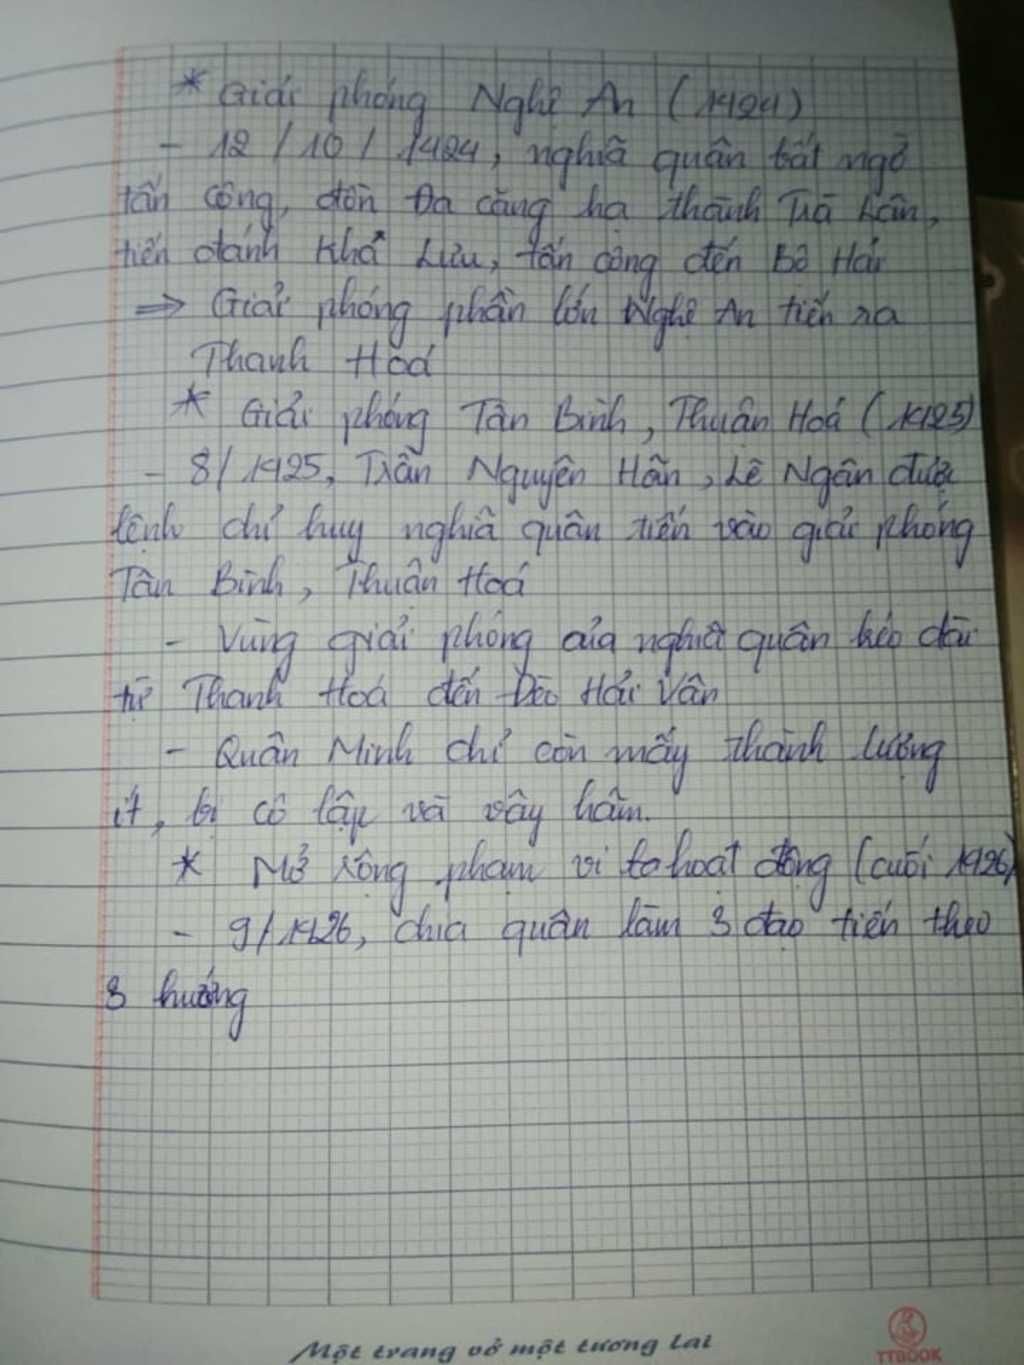 * Giải phóng Nghệ An (1424)
- 12/10/1424, nghĩa quân bất ngờ
tấn công, đồn Đa căng hạ thành Trà Lân,
tiến đánh Khả Lưu, tấn công đến Bồ Hải
⇒ Giải phóng phần lớn Nghệ An tiến ra
Thanh Hoá
* Giải phóng Tân Bình, Thuận Hoá (1425)
- 8/1425, Trần Nguyên Hãn, Lê Ngân được
lệnh chỉ huy nghĩa quân tiến vào giải phóng
Tân Bình, Thuận Hoá
- Vùng giải phóng của nghĩa quân kéo dài
từ Thanh Hoá đến Đèo Hải Vân
- Quân Minh chỉ còn mấy thành lượng
ít, bị cô lập và vây hãm.
* Mở rộng phạm vi hoạt động (cuối 1426)
- 9/1426, chia quân làm 3 đạo tiến theo
3 hướng
Một trang vở một tương lai
TTBOOK